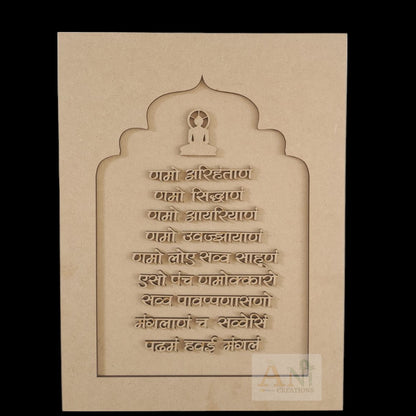 णमो अरिहंताणं
णमो सिद्धाणं
णमो आयरियाणं
णमो उवज्झायाणं
णमो लोए सव्व साहूणं
एसो पंच णमोक्कारो
सव्व पावप्पणासणो
मंगलाणं च सव्वेसिं
पढमं हवई मंगलं
ANI
CREATIONS